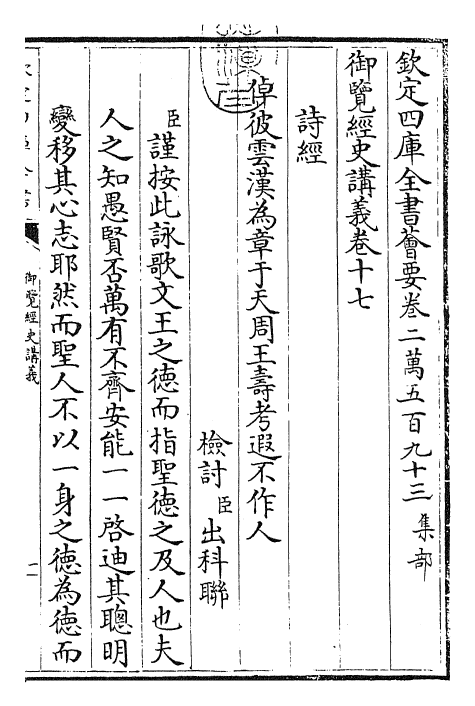 欽定四庫全書薈要卷二萬五百九十三 集部
御覽經史講義卷十七
詩經
倬彼雲漢為章于天周王壽考遐不作人
檢討臣出科聯
臣謹按此詠歌文王之德而指聖德之及人也夫
人之知愚賢否萬有不齊安能一一啓迪其聰明
變移其心志耶然而聖人不以一身之德為德而
御覽經史講義